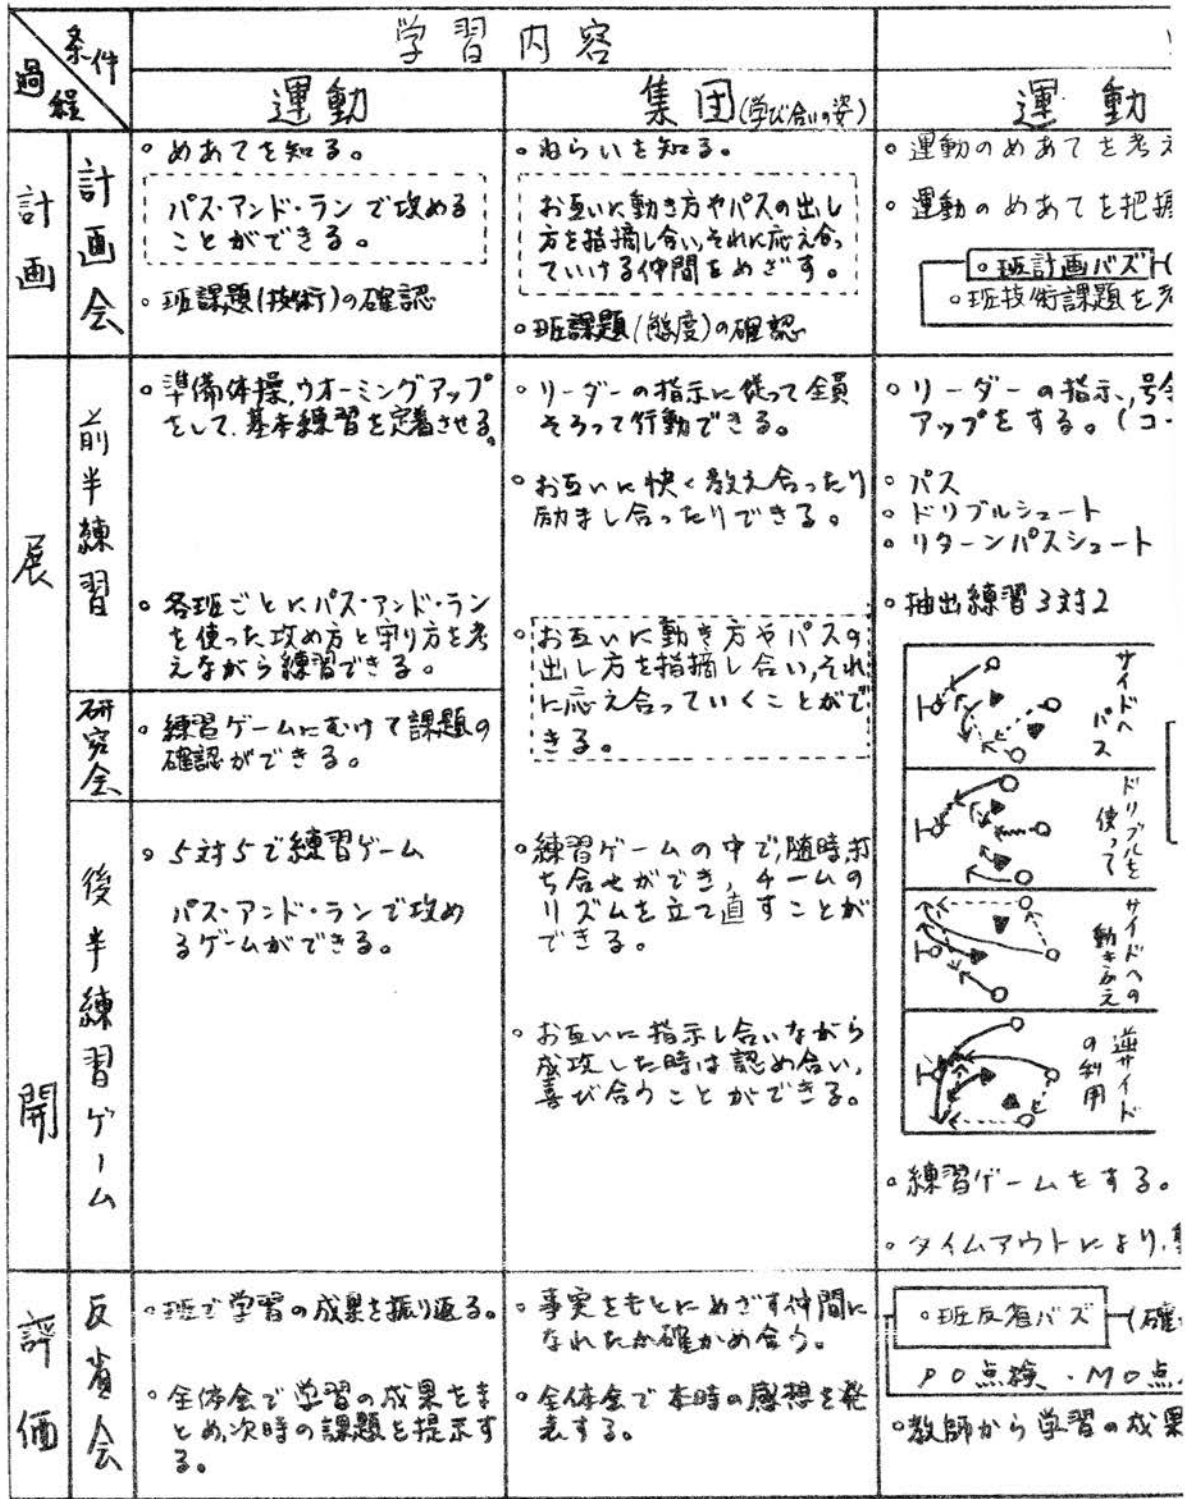 条件
過程
学習内容
運動
集団(学び合いの姿)
運動
計画
計画会
。めあてを知る。
パス・アンド・ランで攻める
ことができる。
。班課題(技術)の確認
。ねらいを知る。
お互いに動き方やパスの出し
方を指摘し合い,それに応え合っ
ていける仲間をめざす。
。班課題(態度)の確認
。運動のめあてを考え
。運動のめあてを把握
。班計画バズ
。班技術課題を考
展開
前半練習
。準備体操,ウオーミングアップ
をして、基本練習を定着させる。
。各班ごとにパス・アンド・ラン
を使った攻め方と守り方を考
えながら練習できる。
。リーダーの指示に従って全員
そろって行動できる。
。お互いに快く教え合ったり
励まし合ったりできる。
。お互いに動き方やパスの
出し方を指摘し合い,それ
に応え合っていくことがで
きる。
。リーダーの指示,号令
アップをする。(コー
。パス
。ドリブルシュート
。リターンパスシュート
。抽出練習3対2
サイドへ
パス
ドリブルを
使って
サイドへの
動きかえ
逆サイド
の利用
研究会
。練習ゲームにむけて課題の
確認ができる。
後半練習ゲーム
。5対5で練習ゲーム
パス・アンド・ランで攻め
るゲームができる。
。練習ゲームの中で,随時打
ち合せができ,チームの
リズムを立て直すことが
できる。
。お互いに指示し合いながら
成攻した時は認め合い,
喜び合うことができる。
。練習ゲームをする。
。タイムアウトにより,
評価
反省会
。班で学習の成果を振り返る。
。全体会で学習の成果をま
とめ,次時の課題を提示す
る。
。事実をもとにめざす仲間に
なれたか確かめ合う。
。全体会で本時の感想を発
表する。
。班反省バズ
(確
PO点検・MO点
。教師から学習の成果